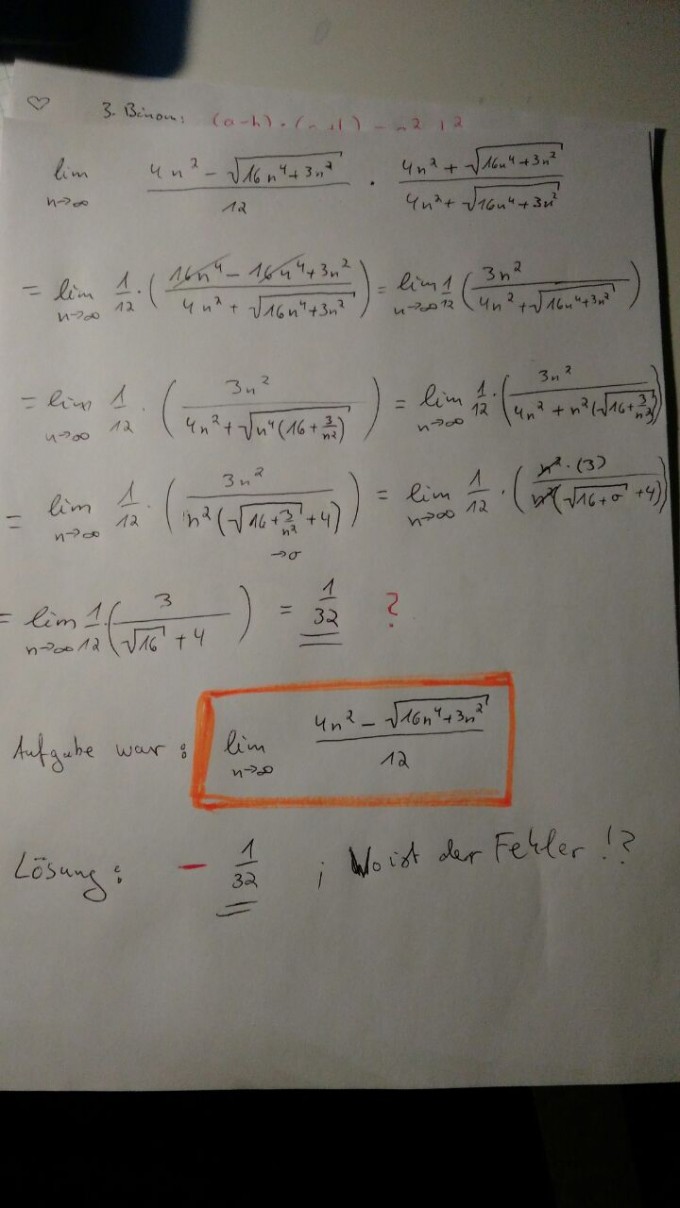 ♡ 3. Binom:
lim n→∞ (4n² - √(16n⁴+3n²))/12 · (4n² + √(16n⁴+3n²))/(4n² + √(16n⁴+3n²))
= lim n→∞ 1/12 · ((16n⁴ - 16n⁴ + 3n²)/(4n² + √(16n⁴+3n²))) = lim n→∞ 1/12 (3n²/(4n² + √(16n⁴+3n²)))
= lim n→∞ 1/12 · (3n²/(4n² + √(n⁴(16 + 3/n²)))) = lim n→∞ 1/12 · (3n²/(4n² + n²(√(16 + 3/n²))))
= lim n→∞ 1/12 · (3n²/(n²(√(16 + 3/n²) + 4))) →0 = lim n→∞ 1/12 · (n² · (3)/(n²(√(16+0) + 4)))
= lim n→∞ 1/12 · (3/(√16 + 4)) = 1/32 ?
Aufgabe war: lim n→∞ (4n² - √(16n⁴+3n²))/12
Lösung: - 1/32 ; Wo ist der Fehler!?